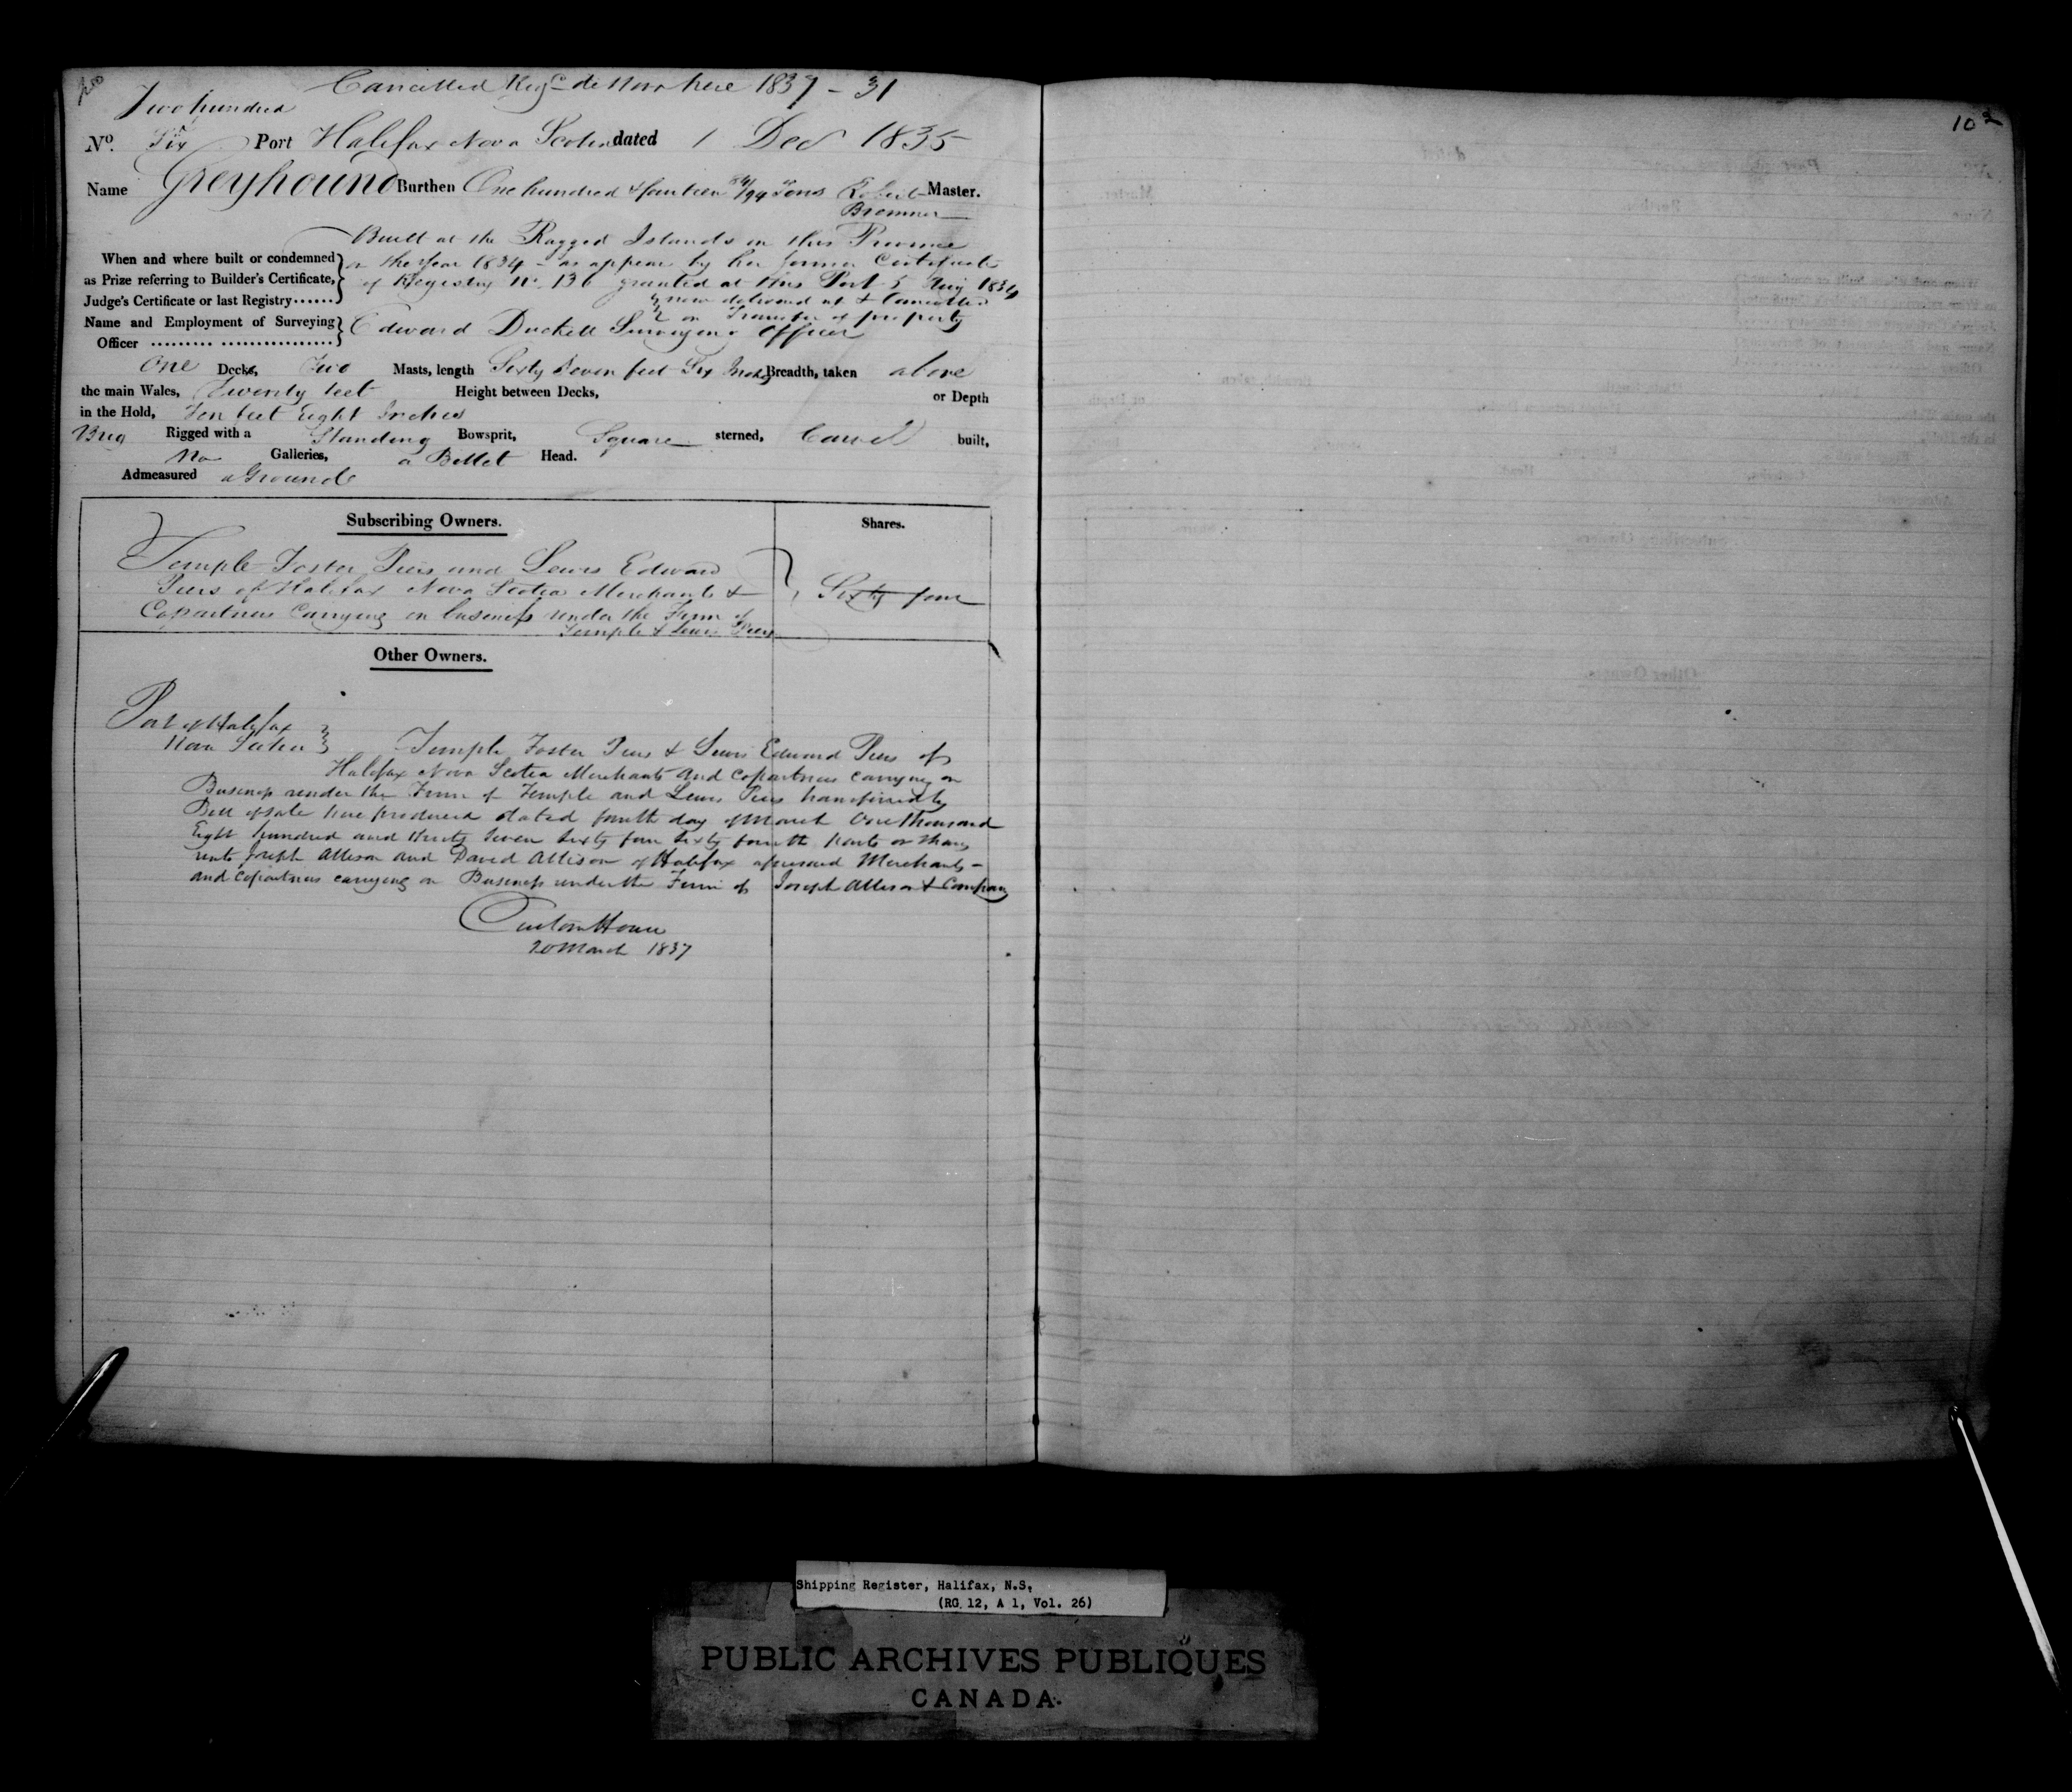 Cancelled Reg de Novo here 1837 - 31
Two hundred
No. Six Port Halifax Nova Scotia dated 1 Dec 1835
Name Greyhound Burthen One hundred & fourteen 84/94 Tons Robert Master.
Bremner
Built at the Ragged Islands in this Province
When and where built or condemned in the Year 1834 - as appears by her former Certificate
as Prize referring to Builder's Certificate, of Registry No. 136 granted at this Port 5 Aug 1834
Judge's Certificate or last Registry...... now delivered up & Cancelled
on Transfer of property
Name and Employment of Surveying Edward Duckett Surveying Officer
Officer ......... ................
One Decks, Two Masts, length Sixty Seven feet Six Inches Breadth, taken above
the main Wales, Twenty feet Height between Decks, or Depth
in the Hold, Ten feet Eight Inches
Brig Rigged with a Standing Bowsprit, Square sterned, Carvel built,
No Galleries, a Billet Head.
Admeasured aGround
Subscribing Owners. Shares.
Temple Foster Piers and Lewis Edward
Piers of Halifax Nova Scotia Merchants & Sixty four
Copartners Carrying on business under the Firm of
Temple & Lewis Piers
Other Owners.
Port of Halifax
Nova Scotia Temple Foster Piers & Lewis Edward Piers of
Halifax Nova Scotia Merchants and Copartners carrying on
Business under the Firm of Temple and Lewis Piers transferred by
Bill of Sale here produced dated fourth day of March One thousand
Eight hundred and thirty seven sixty four sixty fourth parts or shares
unto Joseph Allison and David Allison of Halifax aforesaid Merchants -
and Copartners carrying on Business under the Firm of Joseph Allison & Company
Custom House
20 March 1837
102
Shipping Register, Halifax, N.S.
(RG 12, A 1, Vol. 26)
PUBLIC ARCHIVES PUBLIQUES
CANADA.